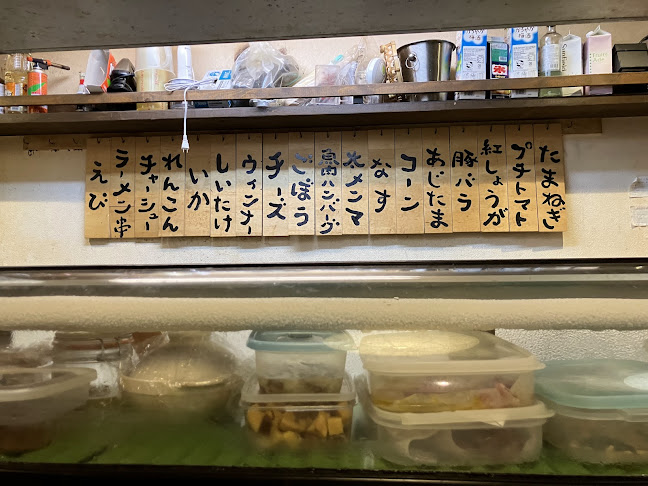 たまねぎ
プチトマト
紅しょうが
豚バラ
あじたま
コーン
なす
太メンマ
魚肉ハンバーグ
ごぼう
チーズ
ウィンナー
しいたけ
いか
れんこん
チャーシュー
ラーメン串
えび